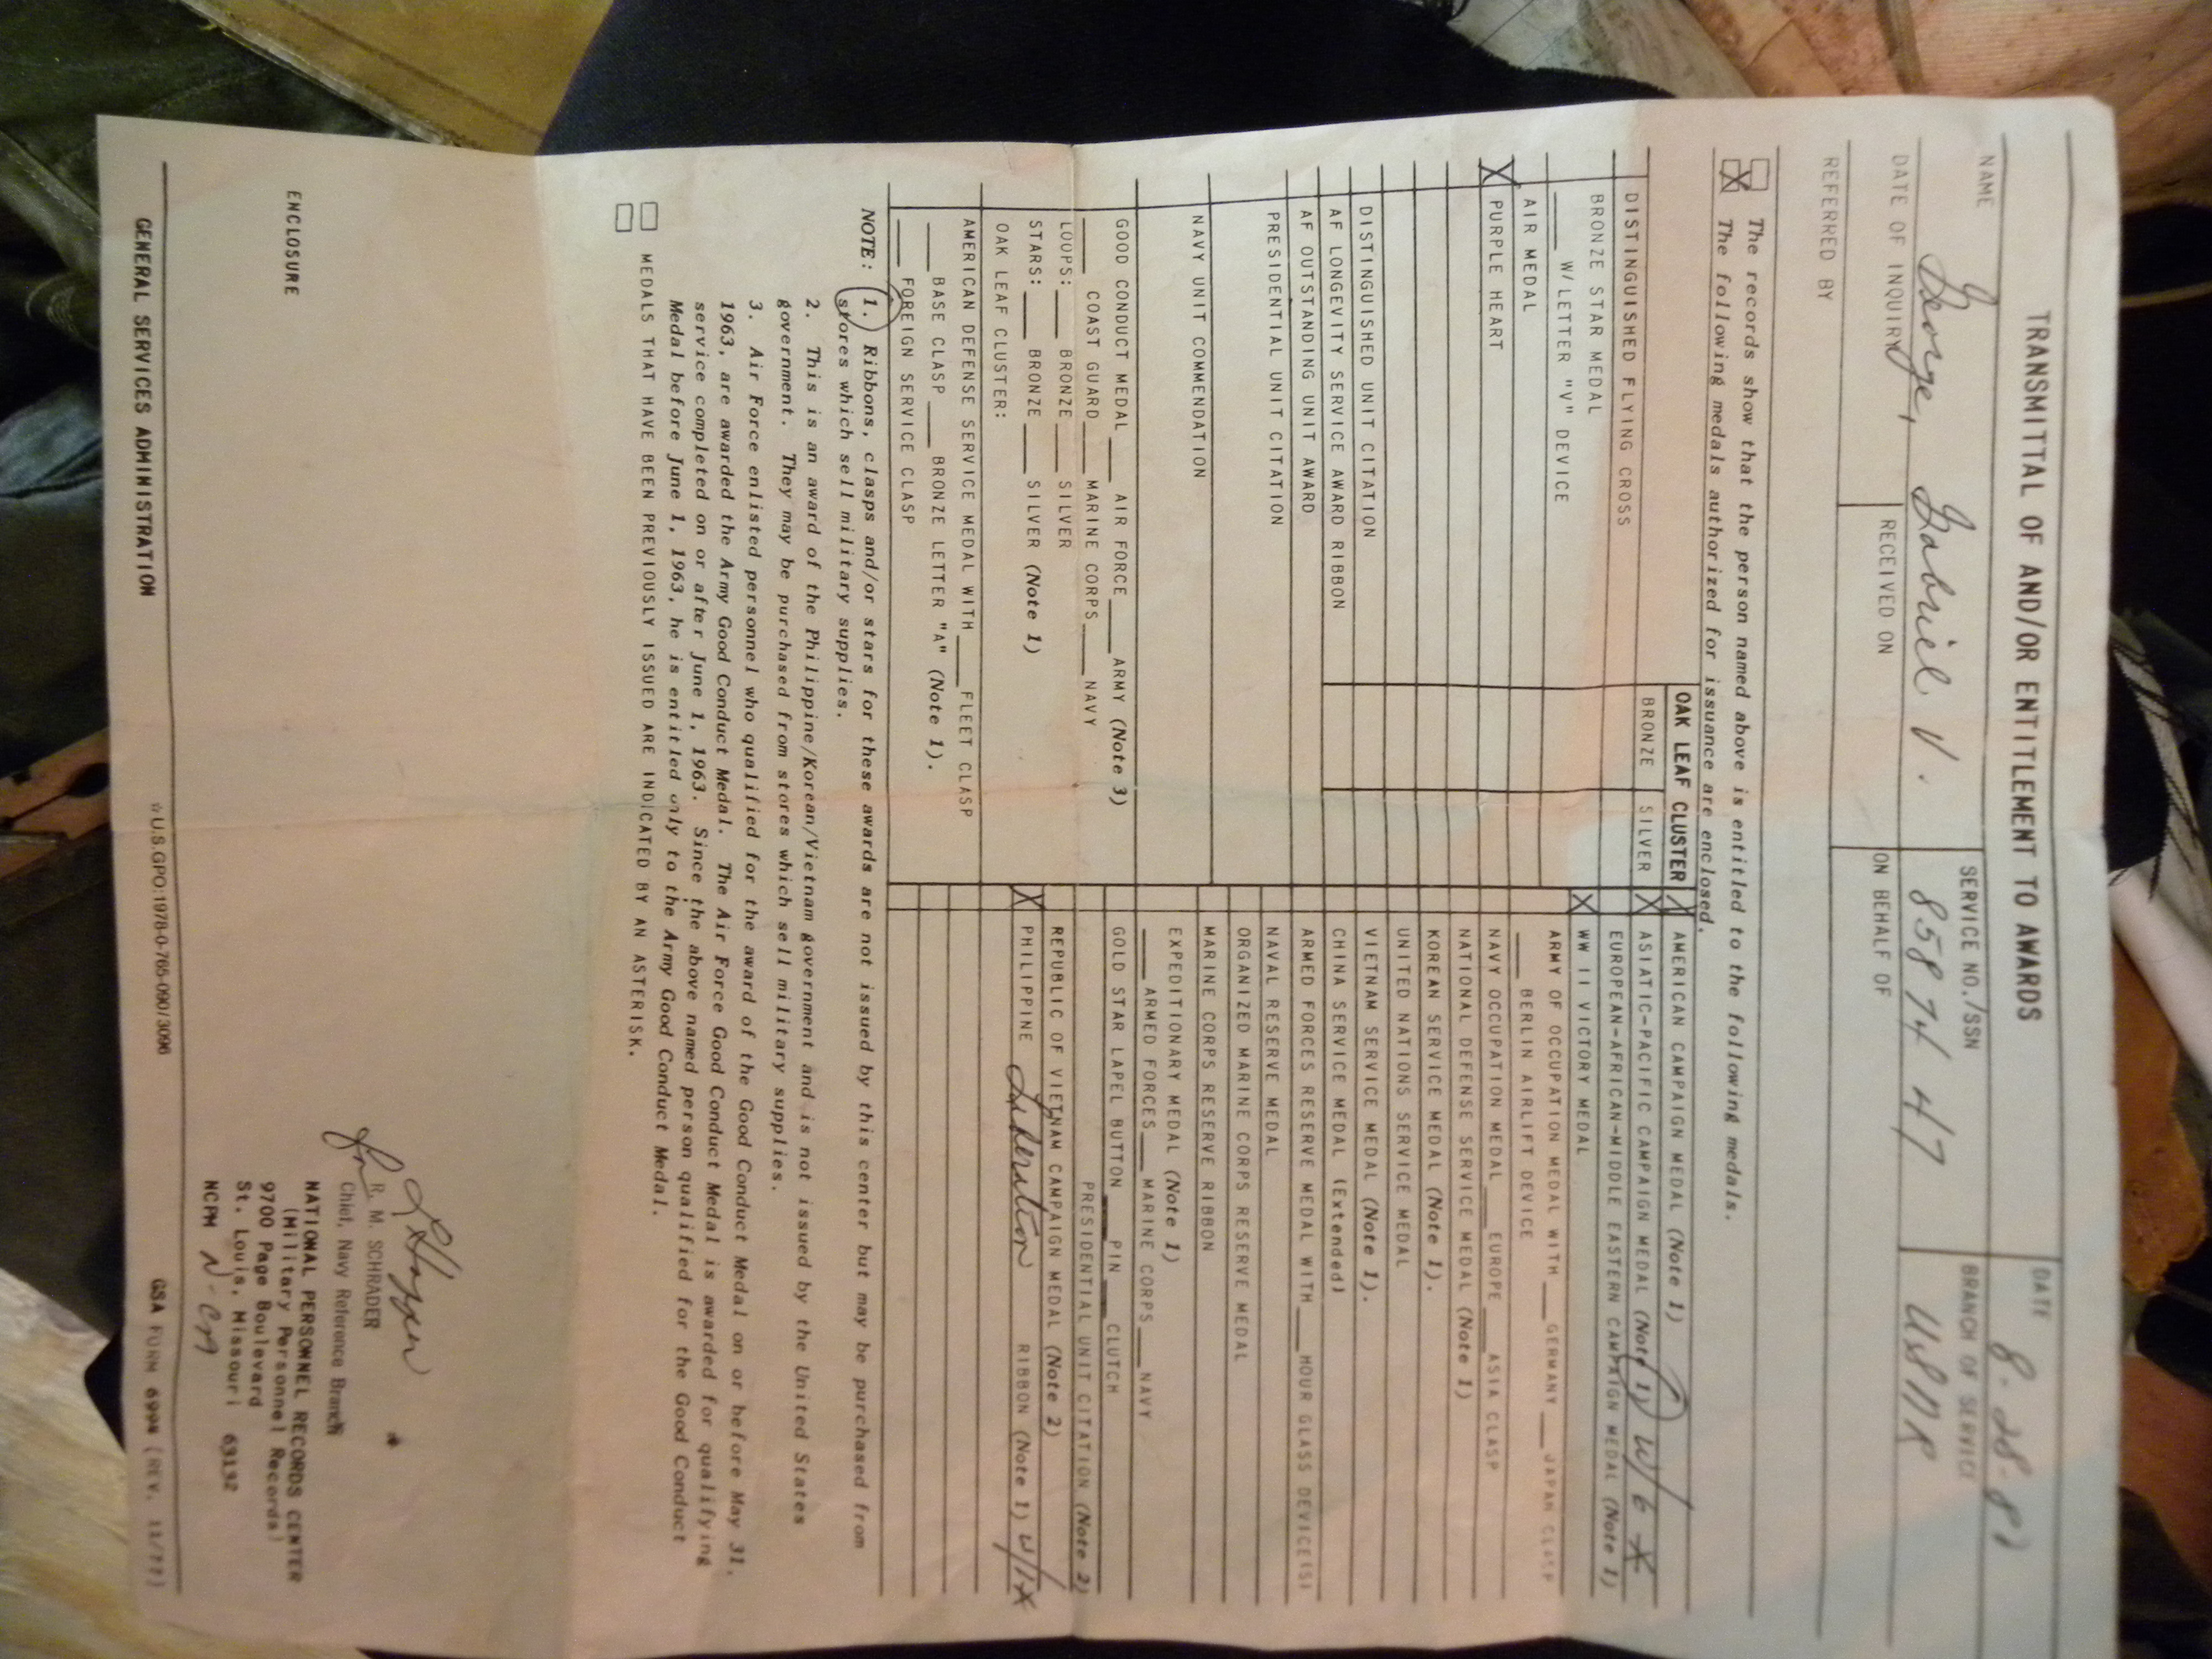 TRANSMITTAL OF AND/OR ENTITLEMENT TO AWARDS
DATE
8-28-81
NAME
George, Gabriel V.
SERVICE NO./SSN
858 74 47
BRANCH OF SERVICE
USNR
DATE OF INQUIRY
RECEIVED ON
ON BEHALF OF
REFERRED BY
The records show that the person named above is entitled to the following medals.
X The following medals authorized for issuance are enclosed.
OAK LEAF CLUSTER
BRONZE SILVER
DISTINGUISHED FLYING CROSS
BRONZE STAR MEDAL
W/LETTER "V" DEVICE
AIR MEDAL
X PURPLE HEART
DISTINGUISHED UNIT CITATION
AF LONGEVITY SERVICE AWARD RIBBON
AF OUTSTANDING UNIT AWARD
PRESIDENTIAL UNIT CITATION
NAVY UNIT COMMENDATION
GOOD CONDUCT MEDAL ___ AIR FORCE ___ ARMY (Note 3)
___ COAST GUARD ___ MARINE CORPS ___ NAVY
LOOPS: ___ BRONZE ___ SILVER
STARS: ___ BRONZE ___ SILVER (Note 1)
OAK LEAF CLUSTER:
AMERICAN DEFENSE SERVICE MEDAL WITH ___ FLEET CLASP
___ BASE CLASP ___ BRONZE LETTER "A" (Note 1).
___ FOREIGN SERVICE CLASP
X AMERICAN CAMPAIGN MEDAL (Note 1)
X ASIATIC-PACIFIC CAMPAIGN MEDAL (Note 1) W/6 *
EUROPEAN-AFRICAN-MIDDLE EASTERN CAMPAIGN MEDAL (Note 1)
X WW II VICTORY MEDAL
ARMY OF OCCUPATION MEDAL WITH ___ GERMANY ___ JAPAN CLASP
___ BERLIN AIRLIFT DEVICE
NAVY OCCUPATION MEDAL ___ EUROPE ___ ASIA CLASP
NATIONAL DEFENSE SERVICE MEDAL (Note 1)
KOREAN SERVICE MEDAL (Note 1).
UNITED NATIONS SERVICE MEDAL
VIETNAM SERVICE MEDAL (Note 1).
CHINA SERVICE MEDAL (Extended)
ARMED FORCES RESERVE MEDAL WITH ___ HOUR GLASS DEVICE(S)
NAVAL RESERVE MEDAL
ORGANIZED MARINE CORPS RESERVE MEDAL
MARINE CORPS RESERVE RIBBON
EXPEDITIONARY MEDAL (Note 1)
___ ARMED FORCES ___ MARINE CORPS ___ NAVY
GOLD STAR LAPEL BUTTON ___ PIN ___ CLUTCH
PRESIDENTIAL UNIT CITATION (Note 2)
REPUBLIC OF VIETNAM CAMPAIGN MEDAL (Note 2)
X PHILIPPINE Liberation RIBBON (Note 1) W/1*
NOTE: 1. Ribbons, clasps and/or stars for these awards are not issued by this center but may be purchased from
stores which sell military supplies.
2. This is an award of the Philippine/Korean/Vietnam government and is not issued by the United States
government. They may be purchased from stores which sell military supplies.
3. Air Force enlisted personnel who qualified for the award of the Good Conduct Medal on or before May 31,
1963, are awarded the Army Good Conduct Medal. The Air Force Good Conduct Medal is awarded for qualifying
service completed on or after June 1, 1963. Since the above named person qualified for the Good Conduct
Medal before June 1, 1963, he is entitled only to the Army Good Conduct Medal.
MEDALS THAT HAVE BEEN PREVIOUSLY ISSUED ARE INDICATED BY AN ASTERISK.
ENCLOSURE
R. M. SCHRADER
Chief, Navy Reference Branch
NATIONAL PERSONNEL RECORDS CENTER
(Military Personnel Records)
9700 Page Boulevard
St. Louis, Missouri 63132
NCPM
GENERAL SERVICES ADMINISTRATION
☆U.S.GPO:1978-0-765-090/3096
GSA FORM 6994 (REV. 11/77)